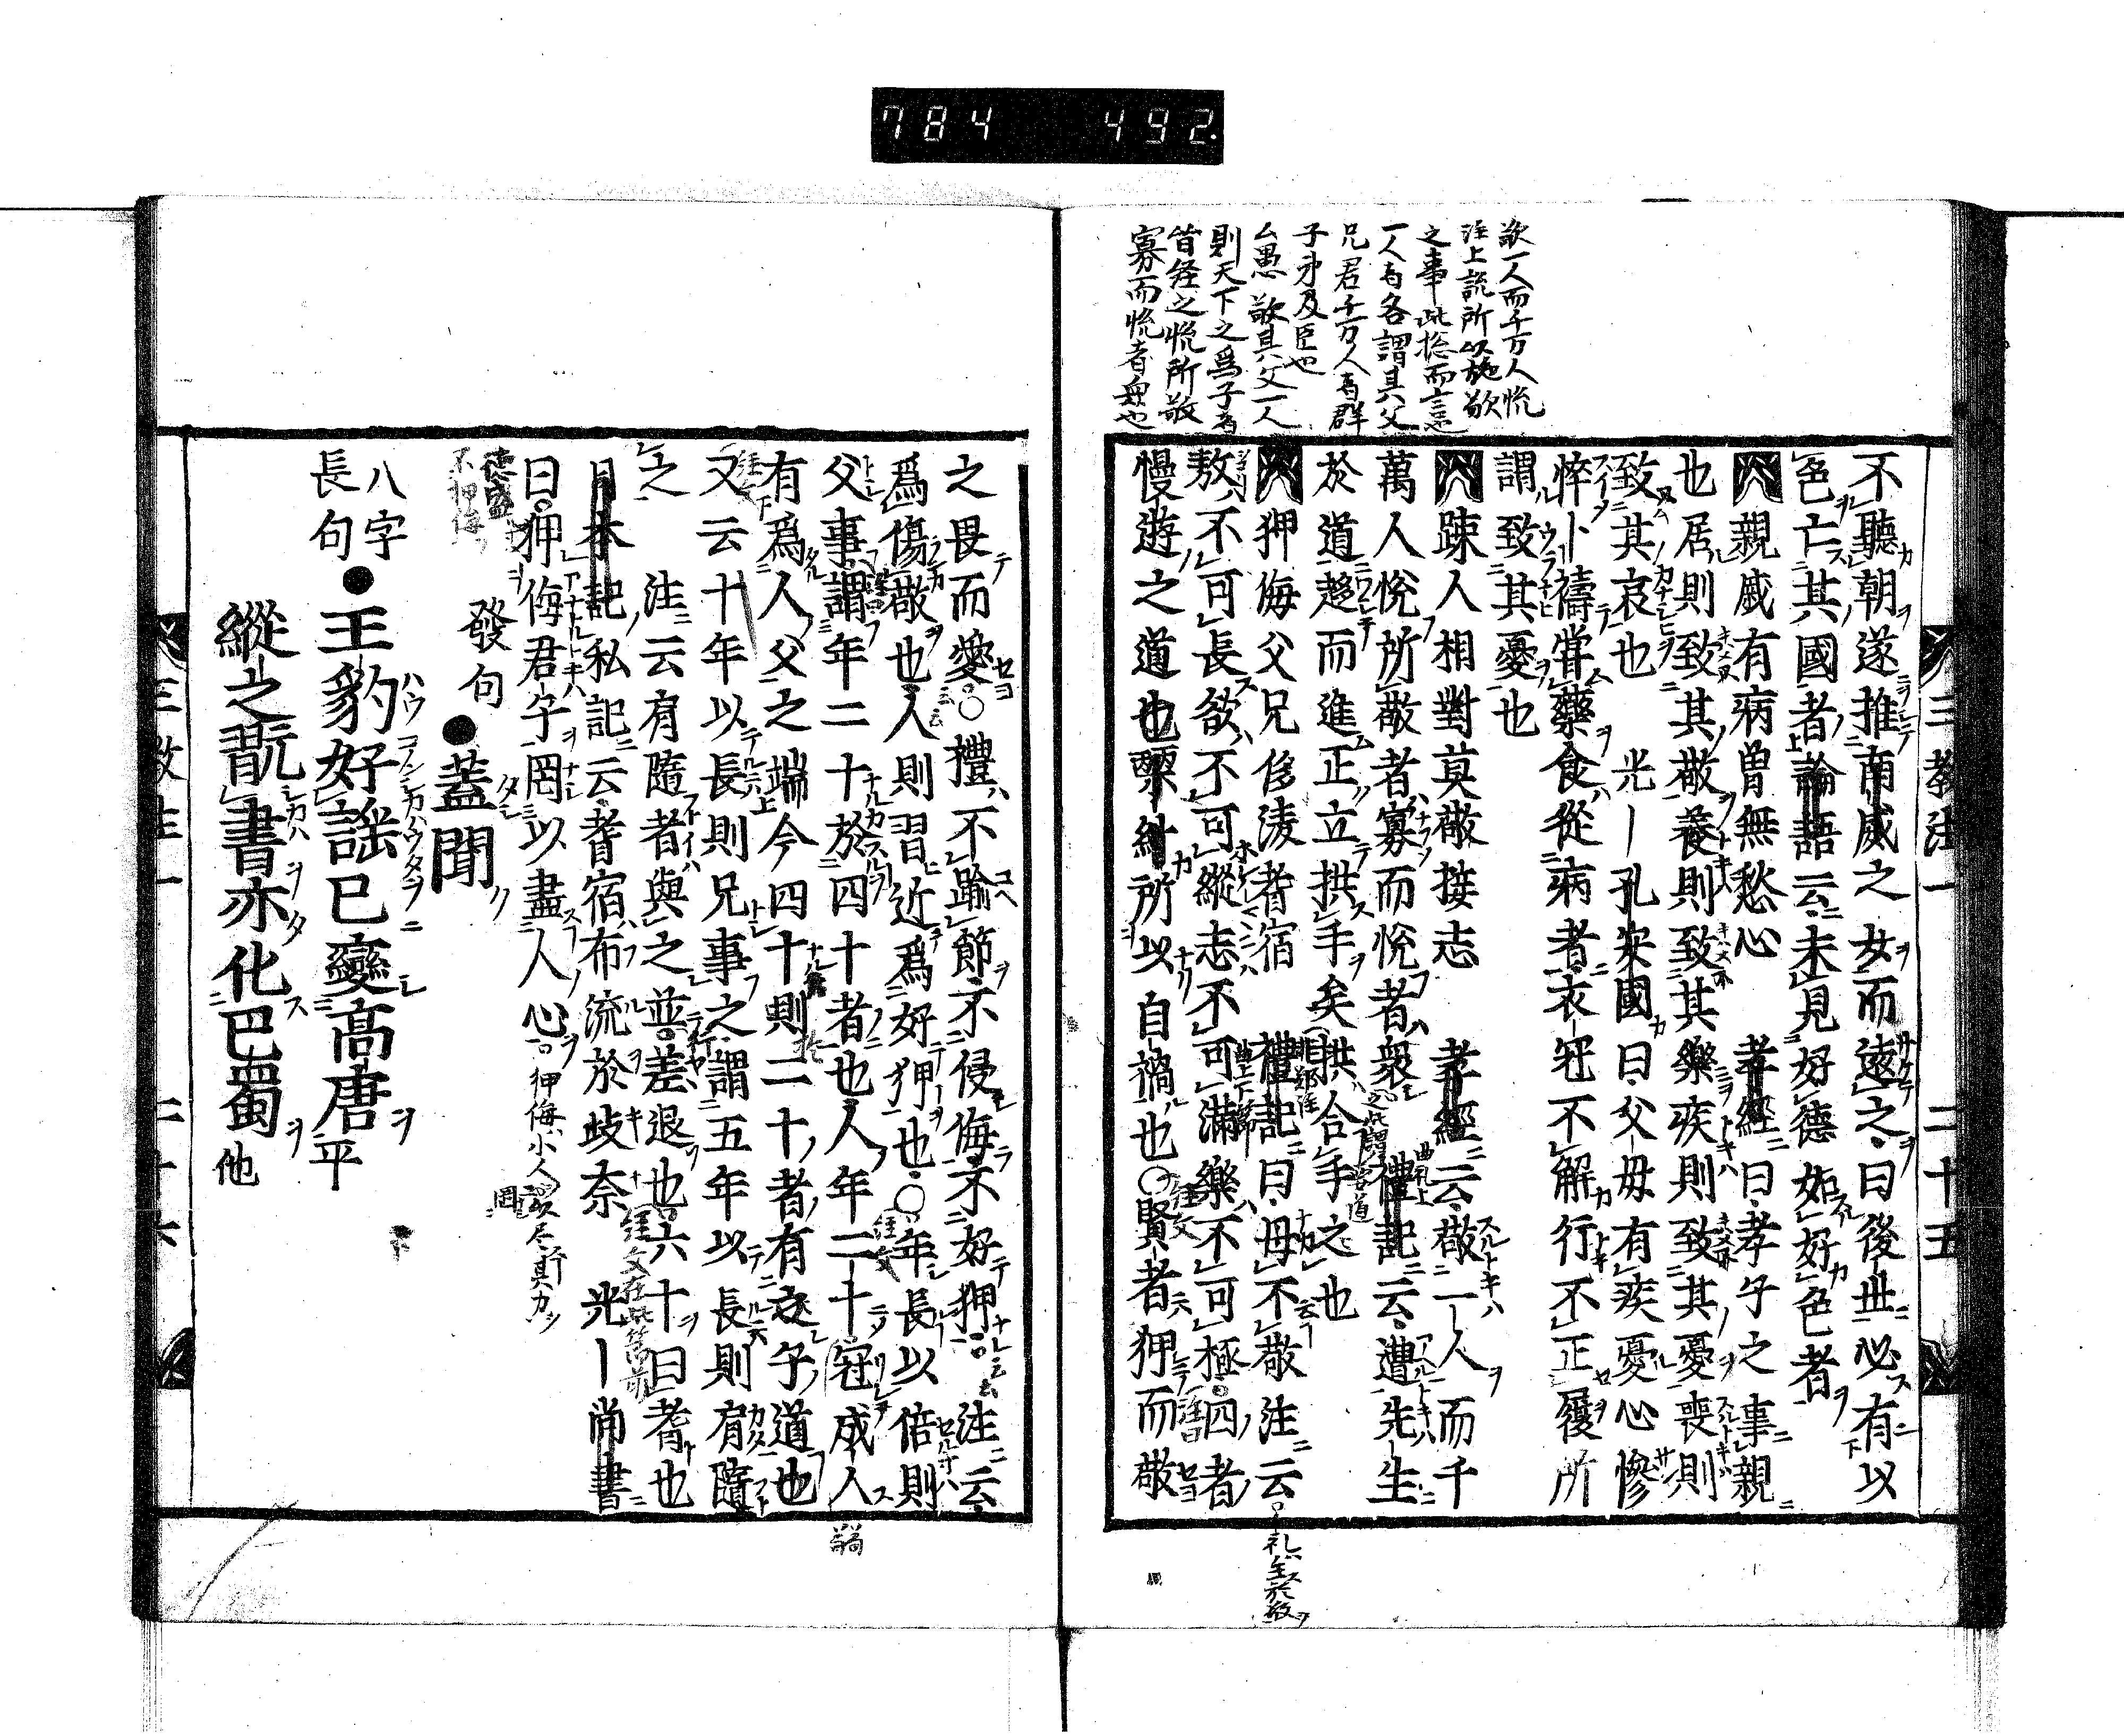 784 492
敬一人而千万人悦
注上説所以施敬
之事此揔而言也
一人者各謂其父
兄君千万人者群
子弟及臣也
敬其父一人
則天下之爲子者
皆経之悦所敬
寡而悦者衆也
三教注一 二十五
不聽朝遂推南威之女而遠之曰後世必有以
色亡其國者論語云未見好德如好色者
親戚有病曽無愁心 孝經曰孝子之事親
也居則致其敬養則致其樂疾則致其憂喪則
致其哀也 光ー孔安國曰父母有疾憂心慘
悴卜禱甞藥食從病者衣冠不解行不正履所
謂致其憂也
疎人相對莫敬接志 孝經云敬一人而千
萬人悦所敬者寡而悦者衆 禮記云遭先生
於道趍而進正立拱手矣 拱合手之也
狎侮父兄侮淩耆宿 禮記曰毋不敬注云
敖不可長欲不可縱志不可滿樂不可極四者
慢遊之道也桀紂所以自禍也○賢者狎而敬
之畏而愛○禮不踰節不侵侮不好狎注云
爲傷敬也人則習近爲好狎也○年長以倍則
父事謂年二十於四十者也人年二十冠成人
有爲人父之端今四十則二十者有子道也
又云十年以長則兄事之謂五年以長則肩隨
之 注云肩隨者與之並差退也六十曰耆也
日本記私記云耆宿布流於歧奈 光ー尚書
曰狎侮君子罔以盡人心
德盛
不狎侮
發句●蓋聞
八字
長句●王豹好謡已變高唐平
縱之翫書亦化巴蜀他